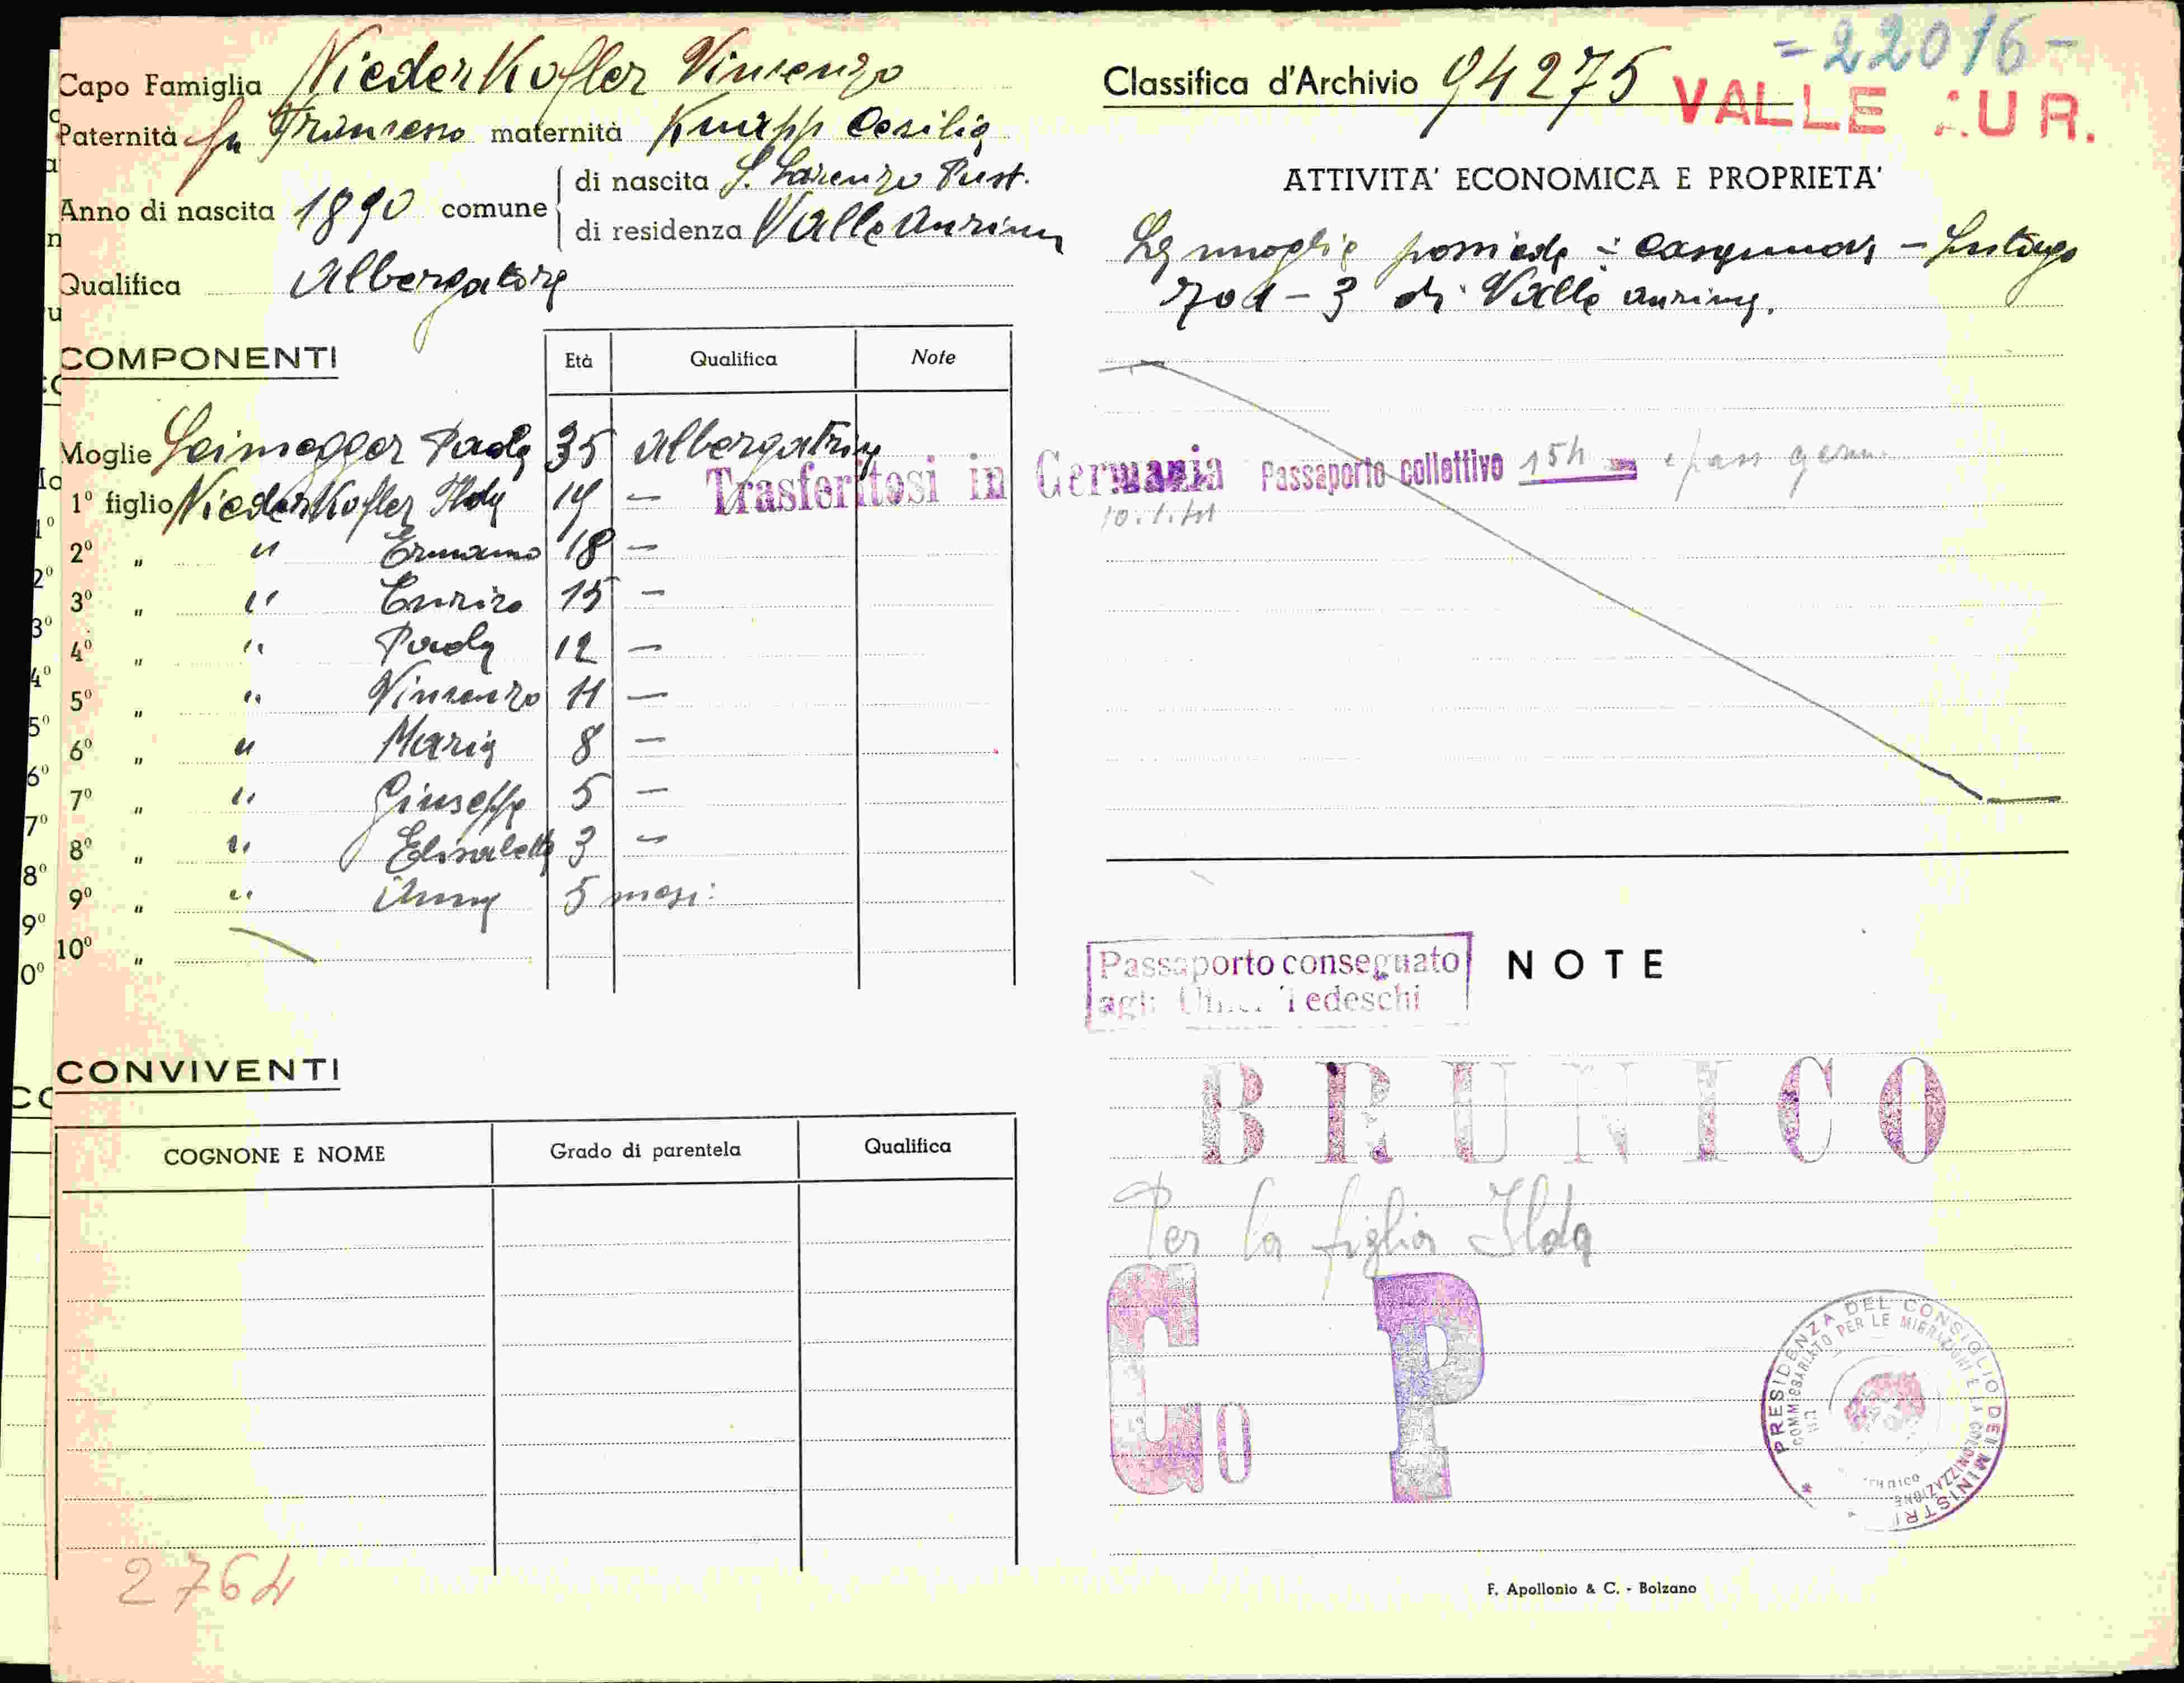 Capo Famiglia Niederkofler Vincenzo
Paternità fu Francesco maternità Knapp Cecilia
Anno di nascita 1890 comune di nascita S. Lorenzo Pust.
di residenza Valle Aurina
Qualifica Albergatore
COMPONENTI Età Qualifica Note
Moglie Leimegger Paola 35 Albergatrice
1º figlio Niederkofler Ilda 19 —
2º " " Ermanno 18 —
3º " " Enrico 15 —
4º " " Paola 12 —
5º " " Vincenzo 11 —
6º " " Maria 8 —
7º " " Giuseppe 5 —
8º " " Elisabetta 3 —
9º " " Anna 5 mesi
10º "
CONVIVENTI
COGNONE E NOME Grado di parentela Qualifica
2764
= 22016 -
Classifica d'Archivio 94275 VALLE AUR.
ATTIVITA' ECONOMICA E PROPRIETA'
La moglie possiede :
- 3 di Valle Aurina.
Trasferitosi in Germania Passaporto collettivo 15h
10.1.41
Passaporto conseguato
agli Uffici Tedeschi
NOTE
BRUNICO
Per la figlia Ilda
Go P
PRESIDENZA DEL CONSIGLIO DEI MINISTRI
COMMISSARIATO PER LE MIGRAZIONI E LA COLONIZZAZIONE
F. Apollonio & C. - Bolzano